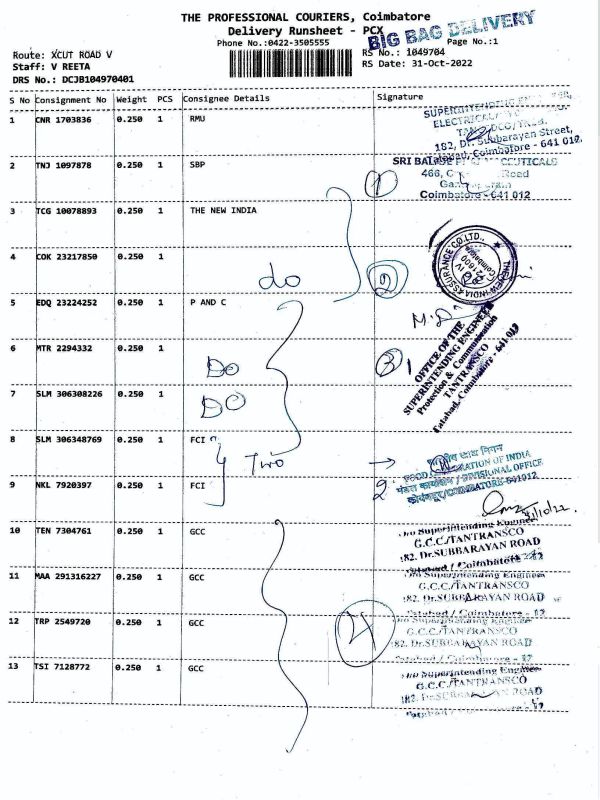 THE PROFESSIONAL COURIERS, Coimbatore
Delivery Runsheet - PCX
BIG BAG DELIVERY
Phone No.:0422-3505555
Page No.:1
Route: XCUT ROAD V
RS No.: 1049704
Staff: V REETA
RS Date: 31-Oct-2022
DRS No.: DCJB104970401
S No Consignment No Weight PCS Consignee Details Signature
1 CNR 1703836 0.250 1 RMU
182, Dr. Subbarayan Street,
Tatabad, Coimbatore - 641 012.
2 TNJ 1097878 0.250 1 SBP
SRI
466, Road
Coimbatore - 641 012
1
3 TCG 10078893 0.250 1 THE NEW INDIA
4 COK 23217850 0.250 1
do
2
THE NEW INDIA ASSURANCE CO.LTD.,
721600
Coimbatore
5 EDQ 23224252 0.250 1 P AND C
6 MTR 2294332 0.250 1
DO
3
OFFICE OF THE
SUPERINTENDING ENGINEER
Protection & Communication
TANTRANSCO
Tatabad, Coimbatore - 641 012
7 SLM 306308226 0.250 1
DO
8 SLM 306348769 0.250 1 FCI
Two
FOOD CORPORATION OF INDIA
मंडल कार्यालय / DIVISIONAL OFFICE
कोयंबत्तूर/COIMBATORE-641012
9 NKL 7920397 0.250 1 FCI
2
31/10/22.
10 TEN 7304761 0.250 1 GCC
O/o Superintending Engineer
G.C.C/TANTRANSCO
182. Dr.SUBBARAYAN ROAD
Tatabad / Coimbatore - 12
11 MAA 291316227 0.250 1 GCC
O/o Superintending Engineer
G.C.C/TANTRANSCO
182. Dr.SUBBARAYAN ROAD
Tatabad / Coimbatore - 12
12 TRP 2549720 0.250 1 GCC
4
O/o Superintending Engineer
G.C.C/TANTRANSCO
182. Dr.SUBBARAYAN ROAD
Tatabad / Coimbatore - 12
13 TSI 7128772 0.250 1 GCC
O/o Superintending Engineer
G.C.C/TANTRANSCO
182. Dr.SUBBARAYAN ROAD
Tatabad / Coimbatore - 12